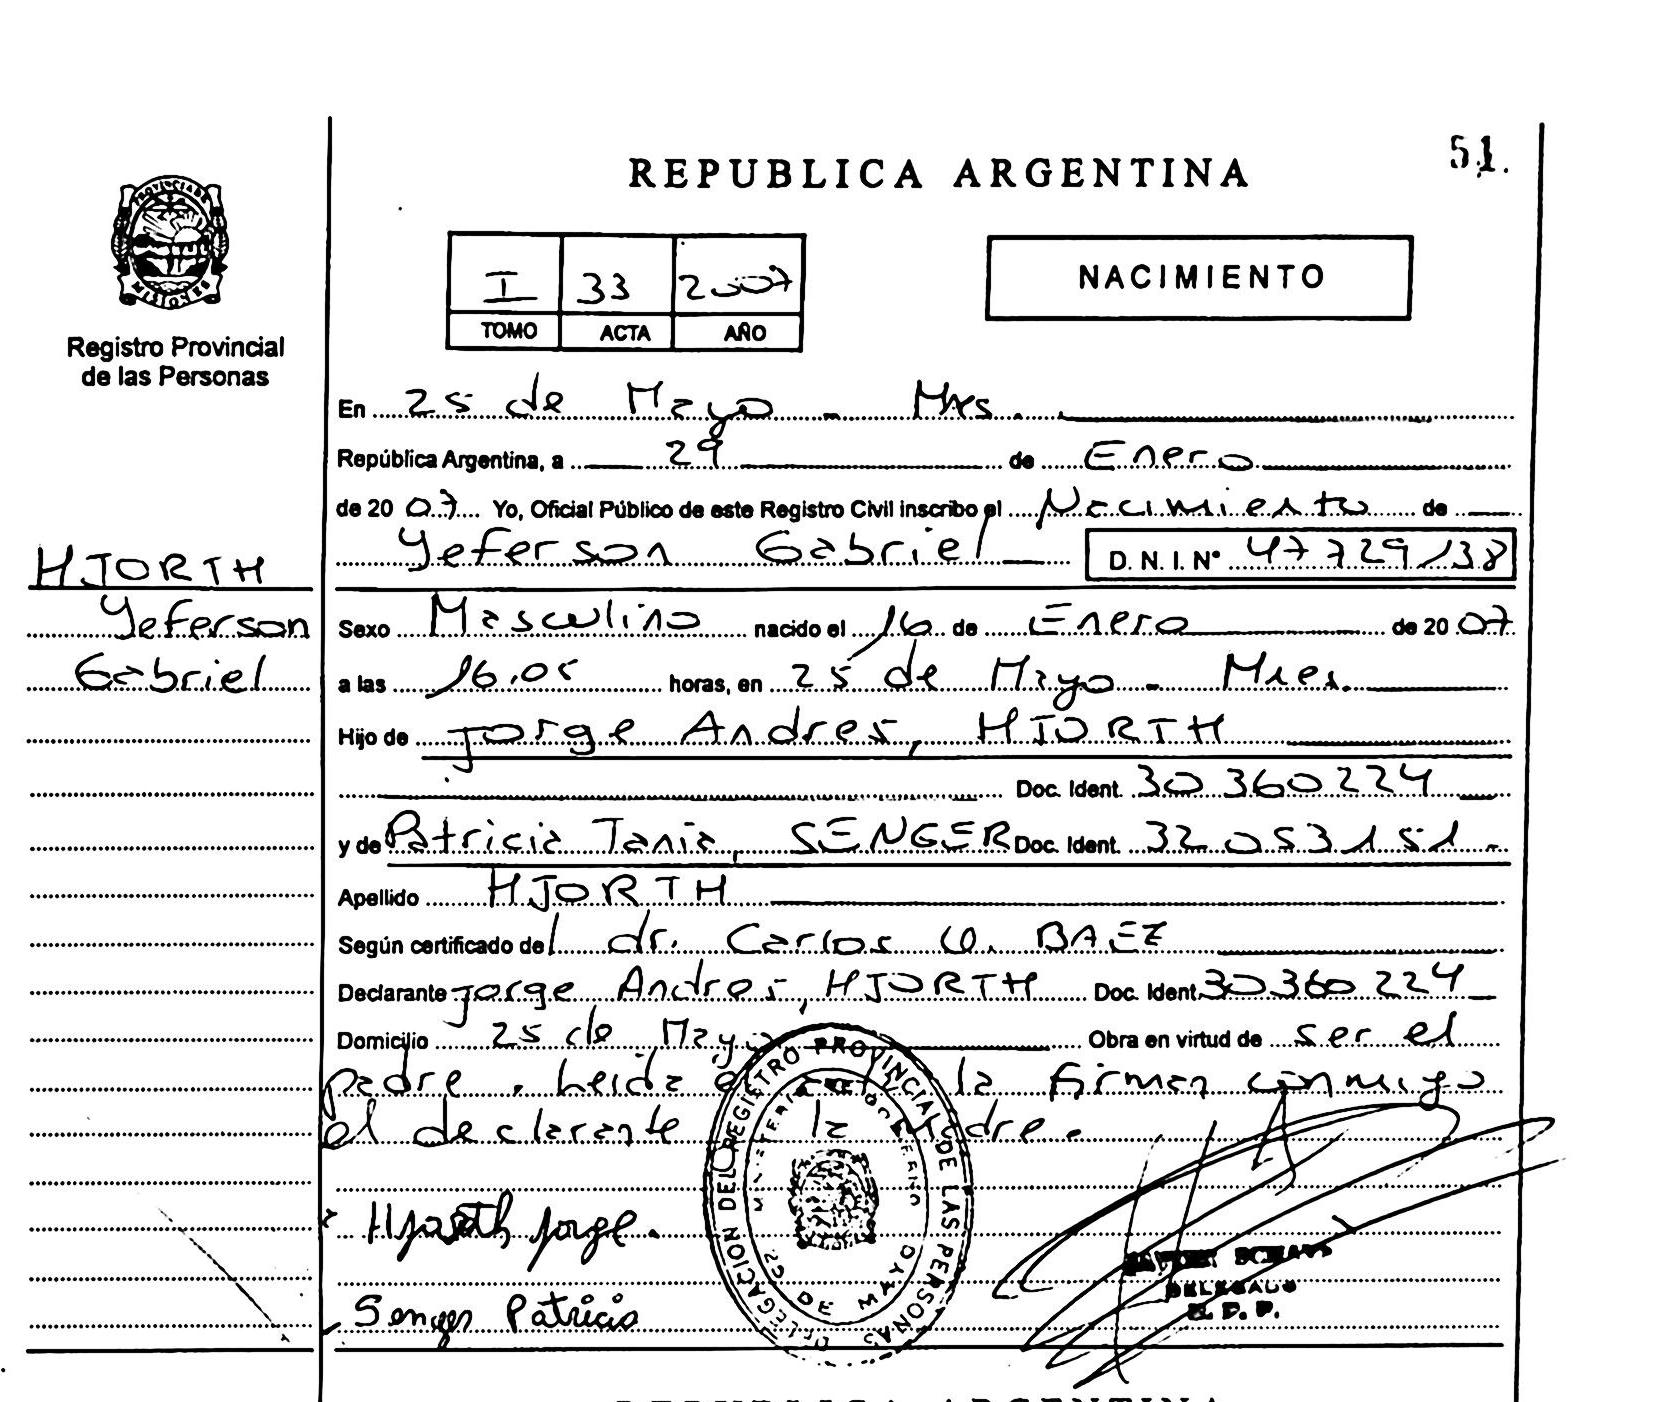 51.
REPUBLICA ARGENTINA
PROVINCIA DE MISIONES
Registro Provincial
de las Personas
I 33 2007
TOMO ACTA AÑO
NACIMIENTO
En 25 de Mayo - Mnes.
República Argentina, a 29 de Enero
de 2007 Yo, Oficial Público de este Registro Civil inscribo el Nacimiento de
Yeferson Gabriel D.N.I.Nº 47729138
HJORTH
Yeferson
Gabriel
Sexo Masculino nacido el 16 de Enero de 2007
a las 16.05 horas, en 25 de Mayo - Mnes.
Hijo de Jorge Andres, HJORTH
Doc. Ident. 30360224
y de Patricia Tania, SENGER Doc. Ident. 32053151.-
Apellido HJORTH
Según certificado del dr. Carlos BAEZ
Declarante Jorge Andres, HJORTH Doc. Ident. 30360224
Domicilio 25 de Mayo Obra en virtud de ser el
padre. Leida el la firman conmigo
el declarante la madre.
DELEGACION DEL REGISTRO PROVINCIAL DE LAS PERSONAS
25 DE MAYO
Hjorth Jorge.
Senger Patricia
DELEGADO
REPUBLICA ARGENTINA